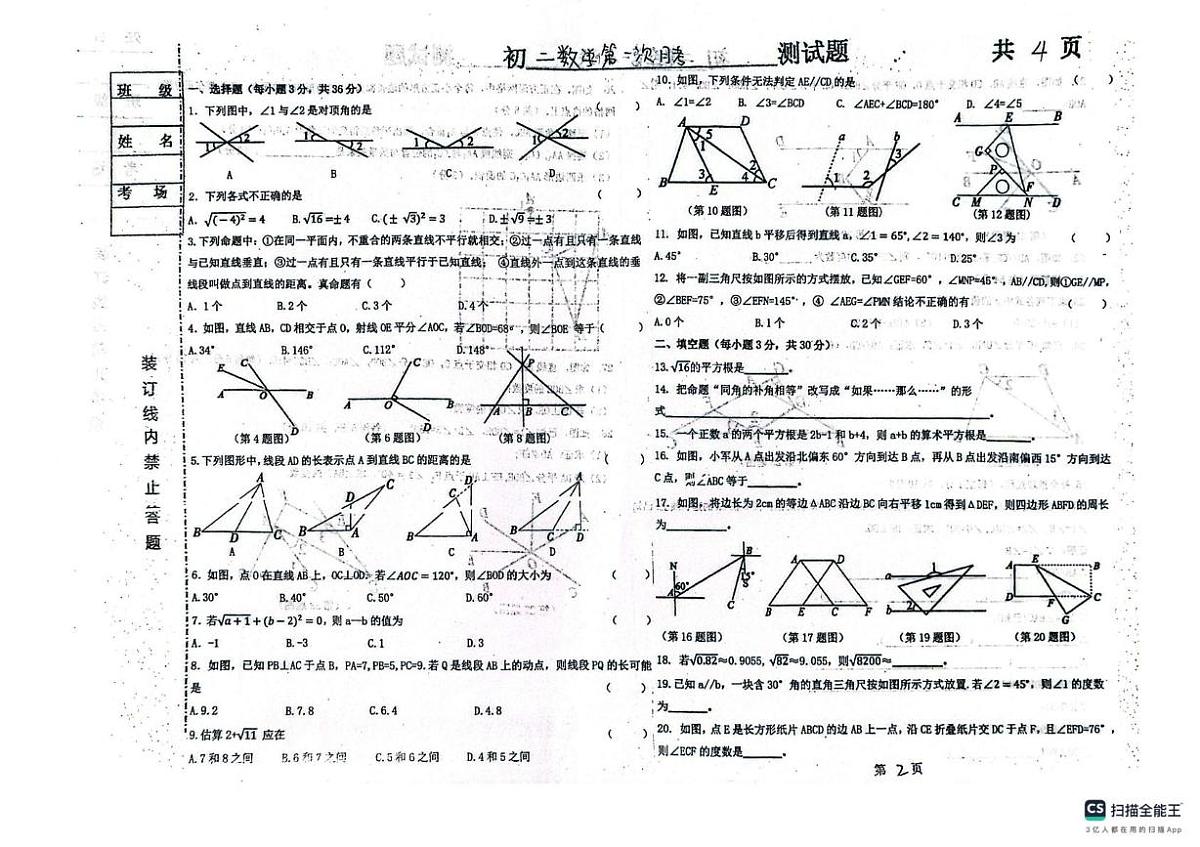 初二数学第一次月考 测试题 共 4 页
班 级
姓 名
考 场
装订线内禁止答题
一、选择题（每小题3分，共36分）
1. 下列图中，∠1与∠2是对顶角的是 （ ）
A B C D
2. 下列各式不正确的是 （ ）
A. √(−4)²=4 B.√16=±4 C.(±√3)²=3 D.±√9=±3
3.下列命题中：①在同一平面内，不重合的两条直线不平行就相交；②过一点有且只有一条直线
与已知直线垂直；③过一点有且只有一条直线平行于已知直线； ④直线外一点到这条直线的垂
线段叫做点到直线的距离。真命题有（ ）
A. 1个 B.2个 C.3个 D.4个
4. 如图，直线AB，CD相交于点O，射线OE平分∠AOC，若∠BOD=68°，则∠BOE 等于（ ）
A.34° B.146° C.112° D.148°
E C A O B D
C A O B D
P A B C
（第4题图） （第6题图） （第8题图）
5.下列图形中，线段AD的长表示点A到直线BC的距离的是 （ ）
A B D C
D C B A
D C B A
A B C D
A B C D
6. 如图，点O在直线AB上，OC⊥OD. 若∠AOC=120°，则∠BOD的大小为 （ ）
A.30° B.40° C.50° D.60°
7. 若√a+1+(b−2)²=0，则a—b的值为 （ ）
A. -1 B.-3 C.1 D.3
8. 如图，已知PB⊥AC于点B，PA=7,PB=5,PC=9.若Q是线段AB上的动点，则线段PQ的长可能
是 （ ）
A.9.2 B.7.8 C.6.4 D.4.8
9.估算2+√11 应在 （ ）
A.7和8之间 B.6和7之间 C.5和6之间 D.4和5之间
10. 如图，下列条件无法判定AE//CD的是 （ ）
A. ∠1=∠2 B. ∠3=∠BCD C. ∠AEC+∠BCD=180° D. ∠4=∠5
A D 5 1 2 3 4 B E C
a b 1 2 3
A E B G P F C M N D
（第10题图） （第11题图） （第12题图）
11. 如图，已知直线b平移后得到直线a，∠1=65°,∠2=140°，则∠3为 （ ）
A.45° B.30° C.35° D.25°
12. 将一副三角尺按如图所示的方式摆放，已知∠GEF=60°，∠MNP=45°，AB//CD,则①GE//MP，
②∠BEF=75°，③∠EFN=145°，④ ∠AEG=∠PMN 结论不正确的有 （ ）
A.0个 B.1个 C.2个 D.3个
二、填空题（每小题3分，共30分）
13.√16的平方根是______。
14. 把命题“同角的补角相等”改写成“如果……那么……”的形
式______。
15. 一个正数a的两个平方根是2b-1和b+4，则a+b的算术平方根是______。
16. 如图，小军从A点出发沿北偏东60°方向到达B点，再从B点出发沿南偏西15°方向到达
C点，则∠ABC等于______。
17. 如图，将边长为2cm的等边△ABC沿边BC向右平移1cm得到△DEF，则四边形ABFD的周长
为______。
N 60° A B 15° S C
A D B E C F
a 1 b 2
A E B D F C G
（第16题图） （第17题图） （第19题图） （第20题图）
18. 若√0.82≈0.9055，√82≈9.055，则√8200≈______。
19.已知a//b，一块含30°角的直角三角尺按如图所示方式放置.若∠2=45°，则∠1的度数
为______。
20. 如图，点E是长方形纸片ABCD的边AB上一点，沿CE折叠纸片交DC于点F，且∠EFD=76°，
则∠ECF的度数是______。
第 2 页
CS 扫描全能王
3亿人都在用的扫描App